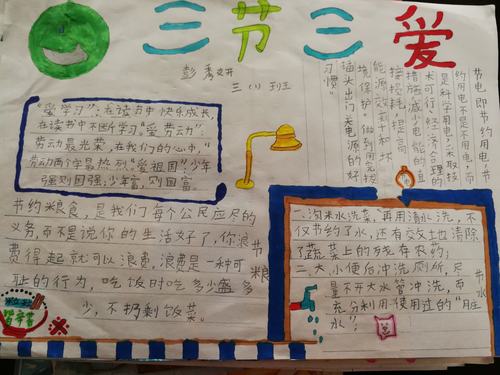 三节三爱
彭秀妍
三(1)班
"爱学习":在读书中快乐成长,
在读书中不断学习"爱劳动",
劳动最光荣,在我们的心中,"
劳动两个字最热烈。"爱祖国"少年
强则国强;少年富,则国富。
节电即节
约用电,节
约用电不是不用电,而
是科学用电,采取技
术可行、经济合理的
措施减少电能的直
接损耗,提高
能源效率和环
境保护。做到用完拔
插头出门关电源的好
习惯
节约粮食,是我们每个公民应尽的
义务,而不是说你的生活好了,你浪
费得起就可以浪费,浪费是一种可
耻的行为,吃饭时吃多少盛多
少,不扔剩饭菜。
节粮
一、淘米水洗菜,再用清水洗,不
仅节约了水,还有效地清除
了蔬菜上的残存农药;
二、大、小便后冲洗厕所,尽
量不开大水管冲洗,而
充分利用使用过的"脏
水";
节水